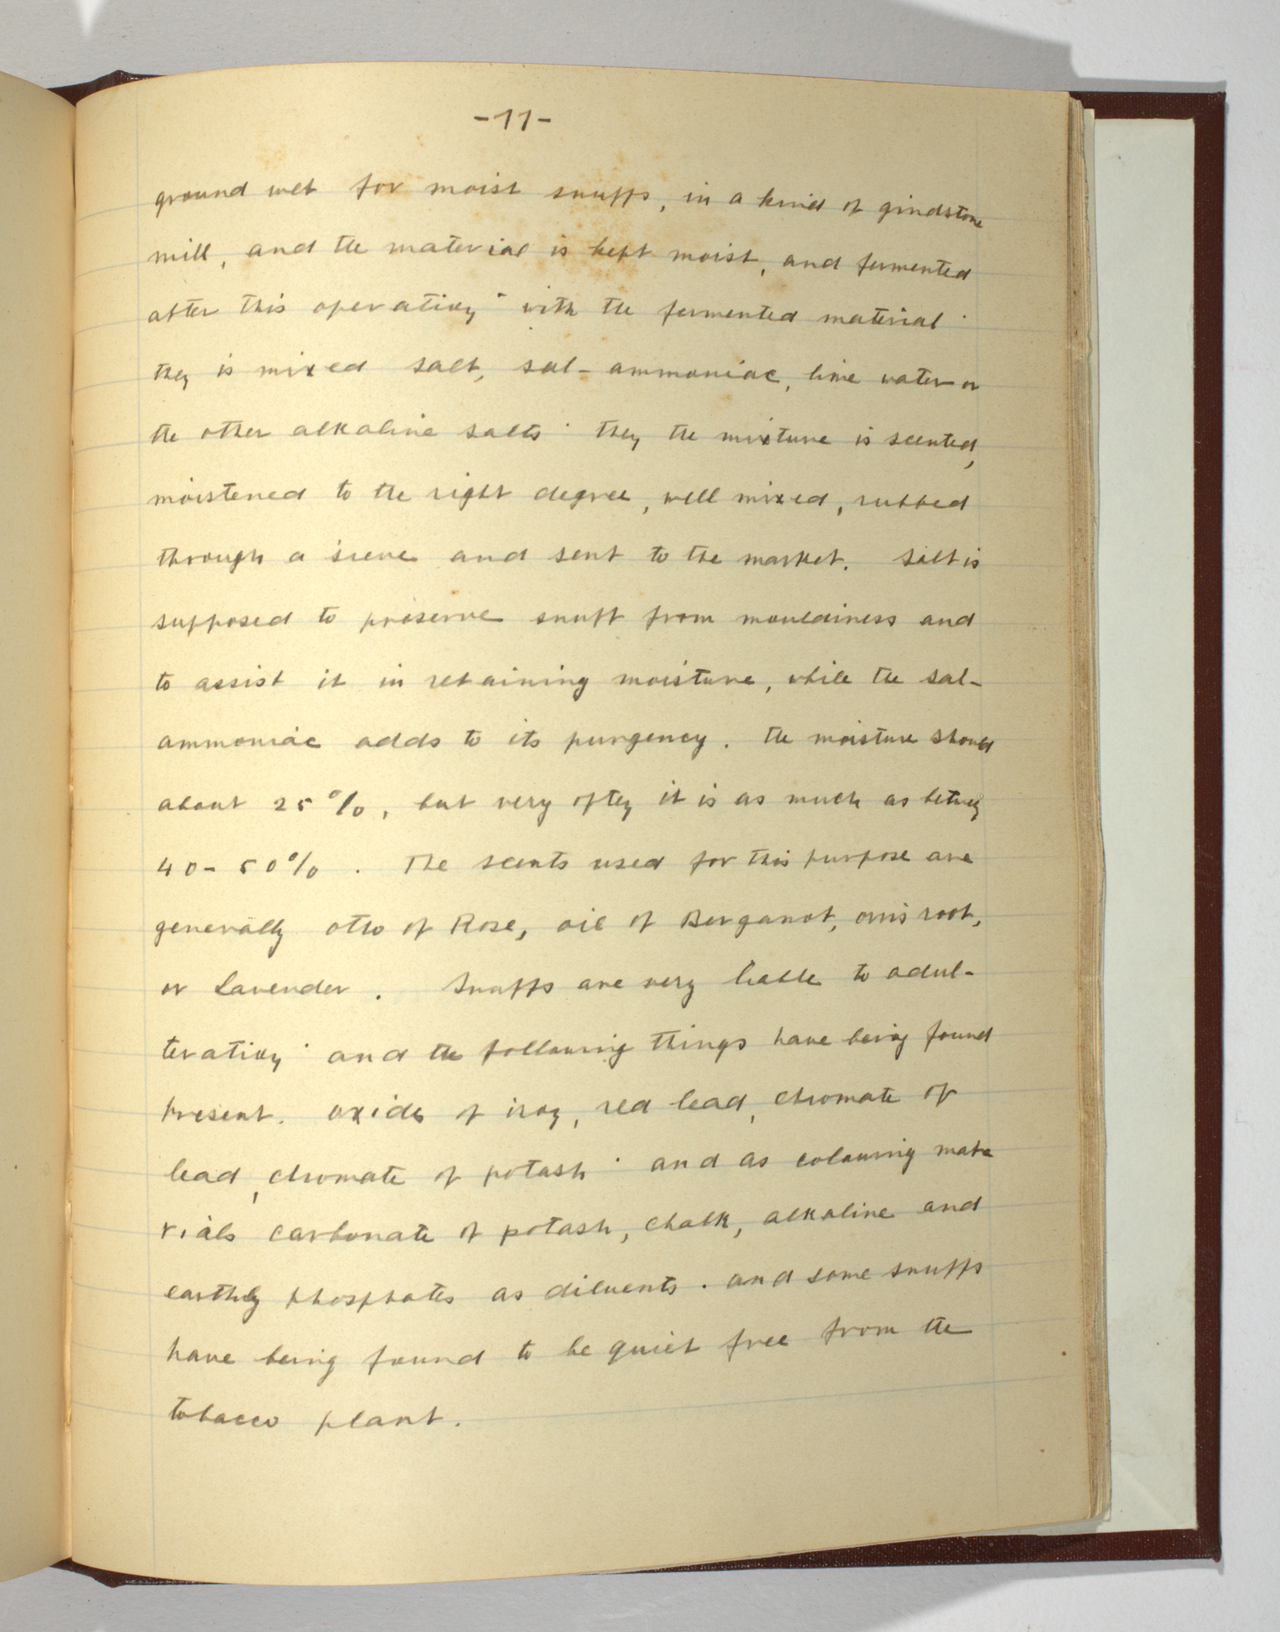 -11-
ground wet for moist snuffs, in a kind of gindstone
mill, and the material is kept moist, and fermented
after this operation · with the fermented material ·
then is mixed salt, sal-ammoniac, lime water or
the other alkaline salts · then the mixture is scented,
moistened to the right degree, well mixed, rubbed
through a sieve and sent to the market. Salt is
supposed to preserve snuff from mouldiness and
to assist it in retaining moisture, while the sal-
ammoniac adds to its pungency. the moisture should
about 25%, but very often it is as much as between
40-50%. The scents used for this purpose are
generally otto of Rose, oil of Bergamot, orris root,
or Lavender. Snuffs are very liable to adul-
teration · and the following things have being found
present. oxide of iron, red lead, chromate of
lead, chromate of potash · and as colouring mate
rials carbonate of potash, chalk, alkaline and
earthly phosphates as diluents. and some snuffs
have being found to be quiet free from the
tobacco plant.